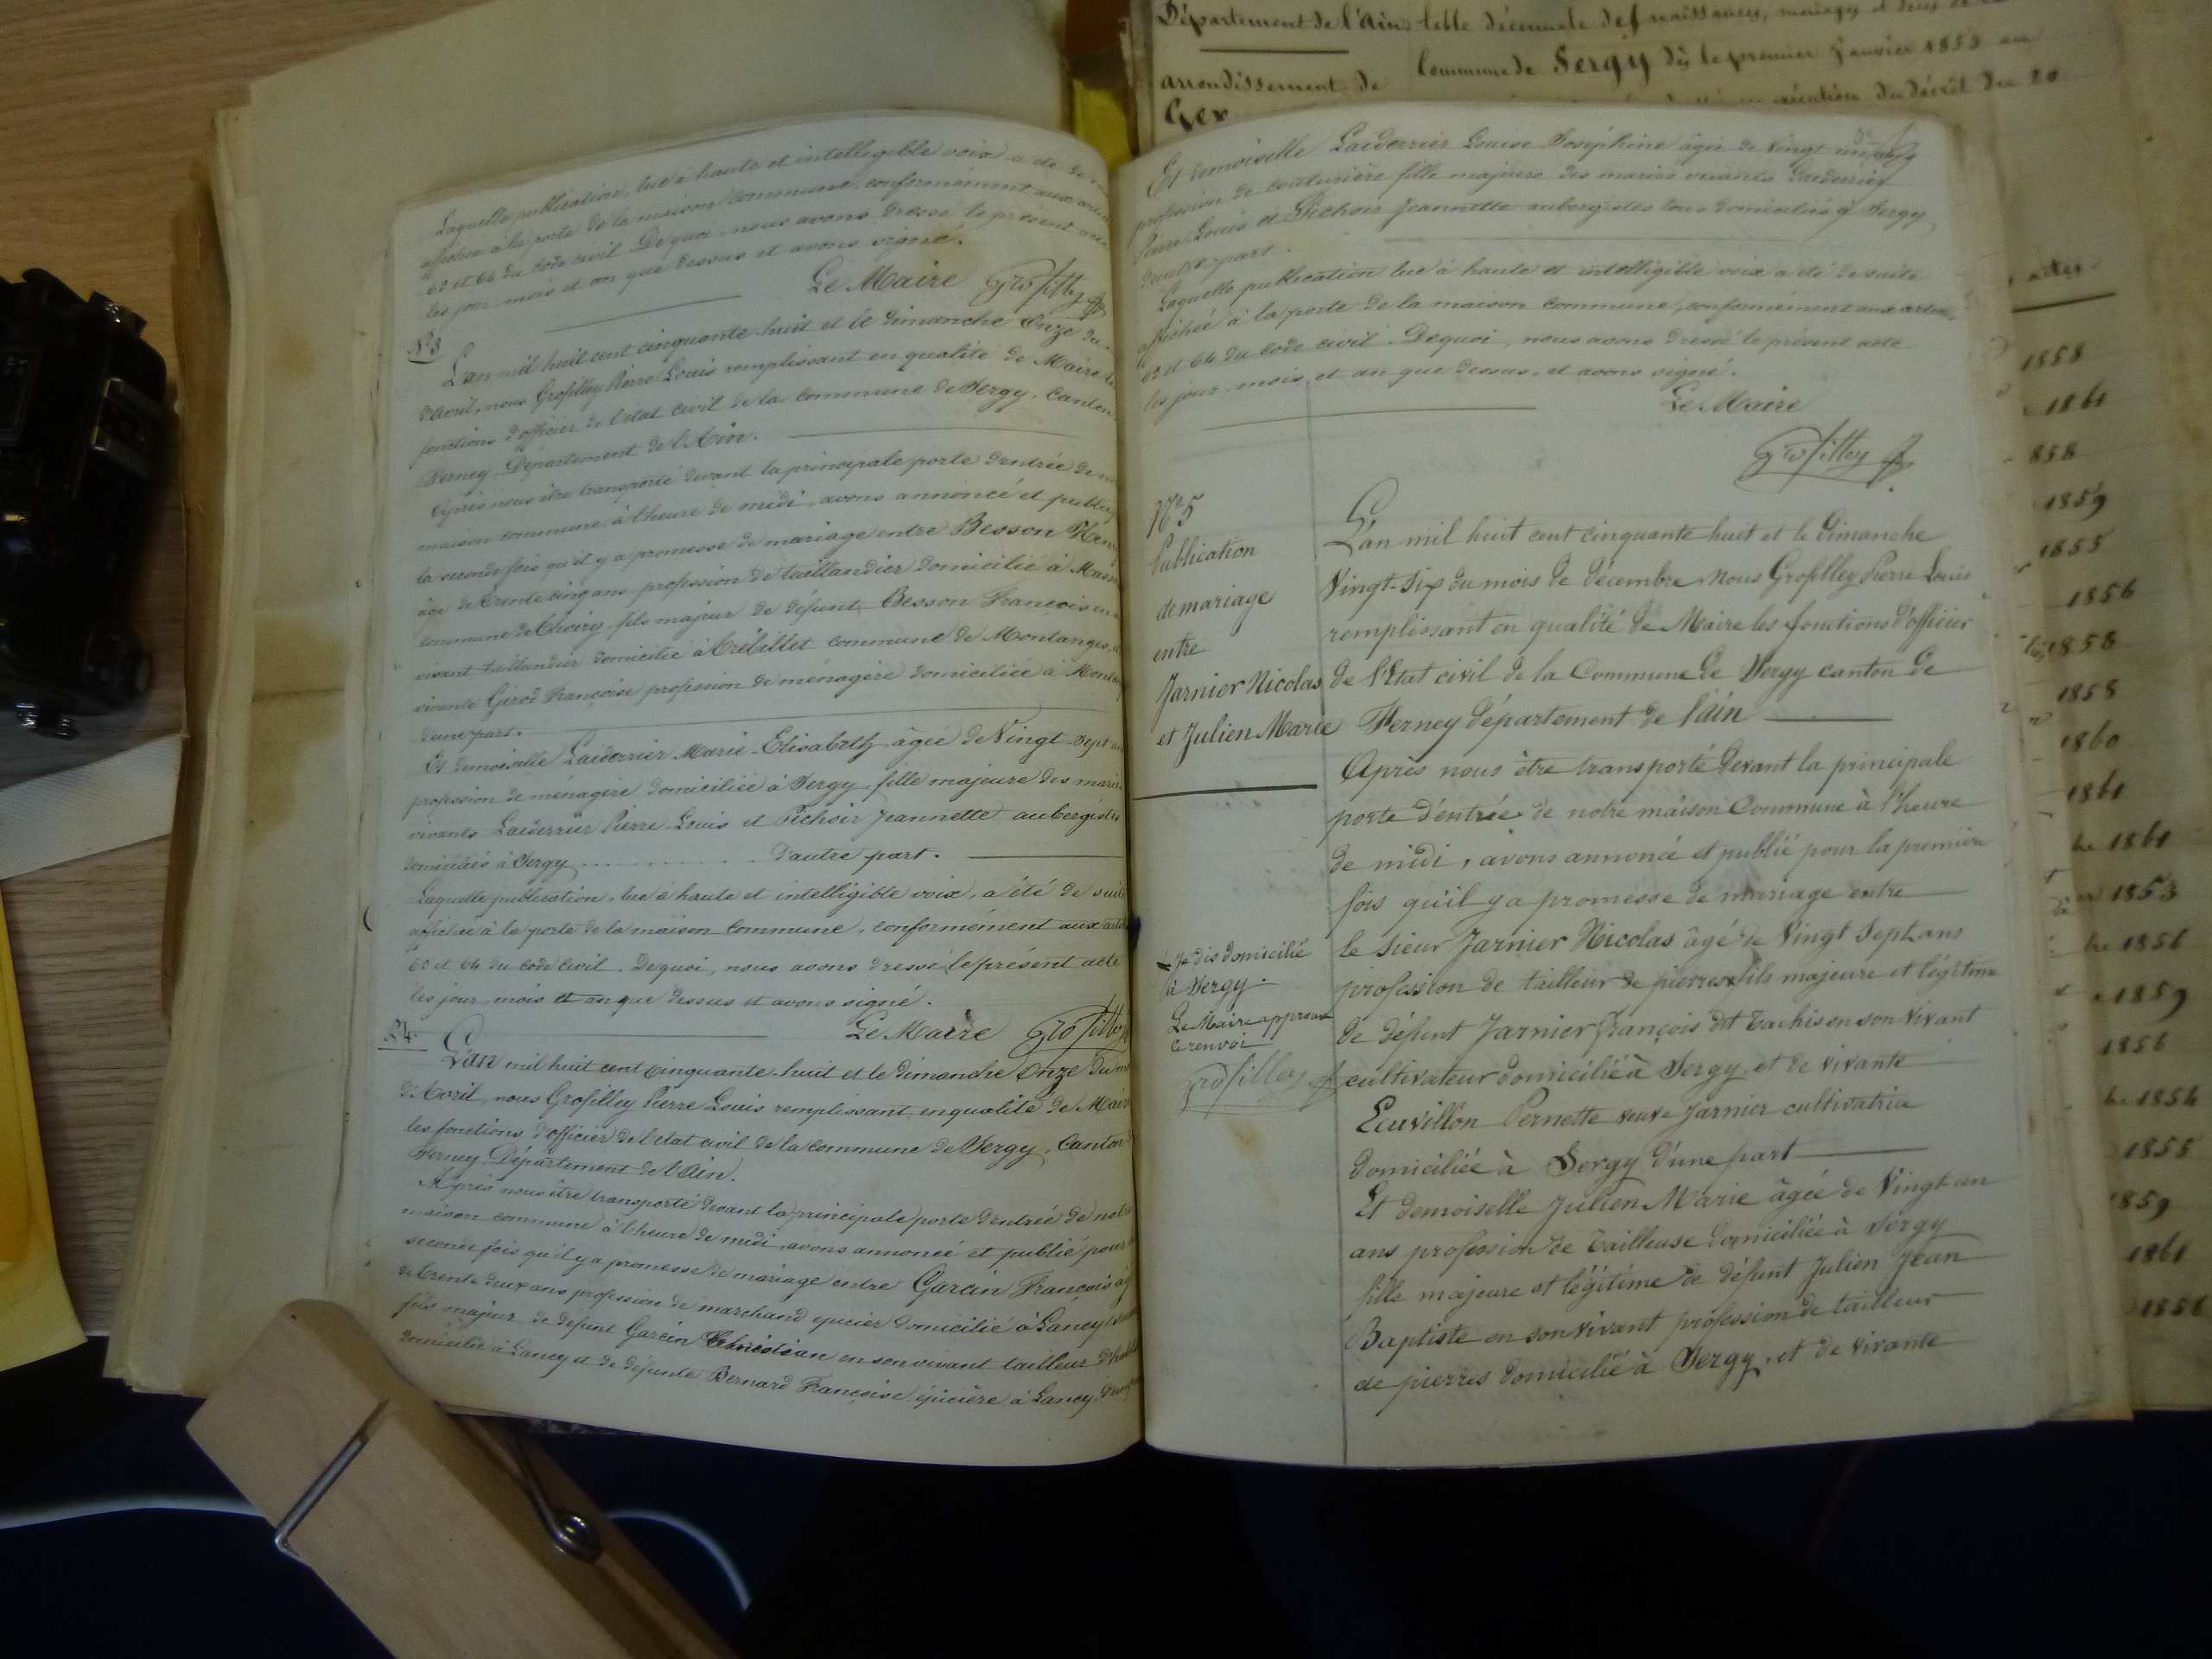 Laquelle publication, lue à haute et intelligible voix a été de
affichée à la porte de la maison commune, conformément aux
63 et 64 du Code civil. De quoi, nous avons dressé le présent acte
les jour mois et an que dessus et avons signé.
Le Maire Grosfilley
N°3
L'an mil huit cent cinquante-huit et le dimanche Onze du
d'Avril, nous Grosfilley Pierre Louis remplissant en qualité de Maire
fonctions d'officier de l'état civil de la commune de Sergy, Canton
Ferney Département de l'Ain.
Après nous être transporté devant la principale porte d'entrée de
maison commune à l'heure de midi, avons annoncé et publié
la seconde fois qu'il y a promesse de mariage entre Besson
âgé de trente cinq ans profession de taillandier domicilié à
commune de fils majeur de défunt Besson François en
vivant taillandier domicilié à Trébillet commune de Montanges,
vivante Girod Françoise profession de ménagère domiciliée à
d'une part.
Et demoiselle Laederrier Marie-Elisabeth âgée de Vingt-Sept
profession de ménagère domiciliée à Sergy, fille majeure des mariés
vivants Laederrier Pierre-Louis et Pichoir Jeannette aubergistes
domiciliés à Sergy .............. d'autre part.
Laquelle publication, lue à haute et intelligible voix, a été de suite
affichée à la porte de la maison commune, conformément aux
63 et 64 du code civil. De quoi, nous avons dressé le présent acte
les jour, mois et an que dessus et avons signé.
Le Maire Grosfilley
N°4.
L'an mil huit cent cinquante-huit et le dimanche Onze du
d'Avril, nous Grosfilley Pierre Louis remplissant en qualité de Maire
les fonctions d'officier de l'état civil de la commune de Sergy, Canton
Ferney, Département de l'Ain.
Après nous être transporté devant la principale porte d'entrée de
maison commune à l'heure de midi, avons annoncé et publié pour
seconde fois qu'il y a promesse de mariage entre Garcin François
de trente deux ans profession de marchand épicier domicilié à Lancy
fils majeur de défunt Garcin Christian en son vivant tailleur
domicilié à Lancy et de défunte Bernard Françoise épicière à Lancy,
Département de l'Ain, table décennale des naissances, mariages et
arrondissement de
Commune de Sergy dès le premier Janvier 1853 au
Gex
exécution du décret du 20
Et demoiselle Laederrier Louise Joséphine âgée de Vingt
profession de couturière fille majeure des mariés vivants Laederrier
Pierre-Louis et Pichoir Jeannette aubergistes tous domiciliés à Sergy,
d'autre part.
Laquelle publication lue à haute et intelligible voix a été de suite
affichée à la porte de la maison commune, conformément aux
63 et 64 du code civil. De quoi, nous avons dressé le présent acte
les jour, mois, et an que dessus, et avons signé.
Le Maire
Grosfilley
N°5
Publication
de mariage
entre
Jarnier Nicolas
et Julien Marie
L'an mil huit cent cinquante huit et le Dimanche
Vingt-Six du mois de décembre Nous Grosfilley Pierre Louis
remplissant en qualité de Maire les fonctions d'officier
de l'Etat civil de la Commune de Sergy canton de
Ferney département de l'ain
Après nous être transporté devant la principale
porte d'entrée de notre maison Commune à l'heure
de midi, avons annoncé et publié pour la première
fois qu'il y a promesse de mariage entre
le sieur Jarnier Nicolas âgé de Vingt Sept ans
profession de tailleur de pierres fils majeure et légitime
de défunt Jarnier François dit Tachis en son vivant
cultivateur domicilié à Sergy, et de vivante
Ecuvillon Pernette veuve Jarnier cultivatrice
domiciliée à Sergy d'une part
Et demoiselle Julien Marie âgée de Vingt un
ans profession de Tailleuse domiciliée à Sergy
fille majeure et légitime de défunt Julien Jean
Baptiste en son vivant profession de tailleur
de pierres domicilié à Sergy, et de vivante
je dis domicilié
à Sergy.
Le Maire approuve
le renvoi
Grosfilley
1858
1861
858
1859
1855
1856
1858
1858
1860
1861
1861
1853
1856
1859
1856
1854
1855
1859
1861
1856